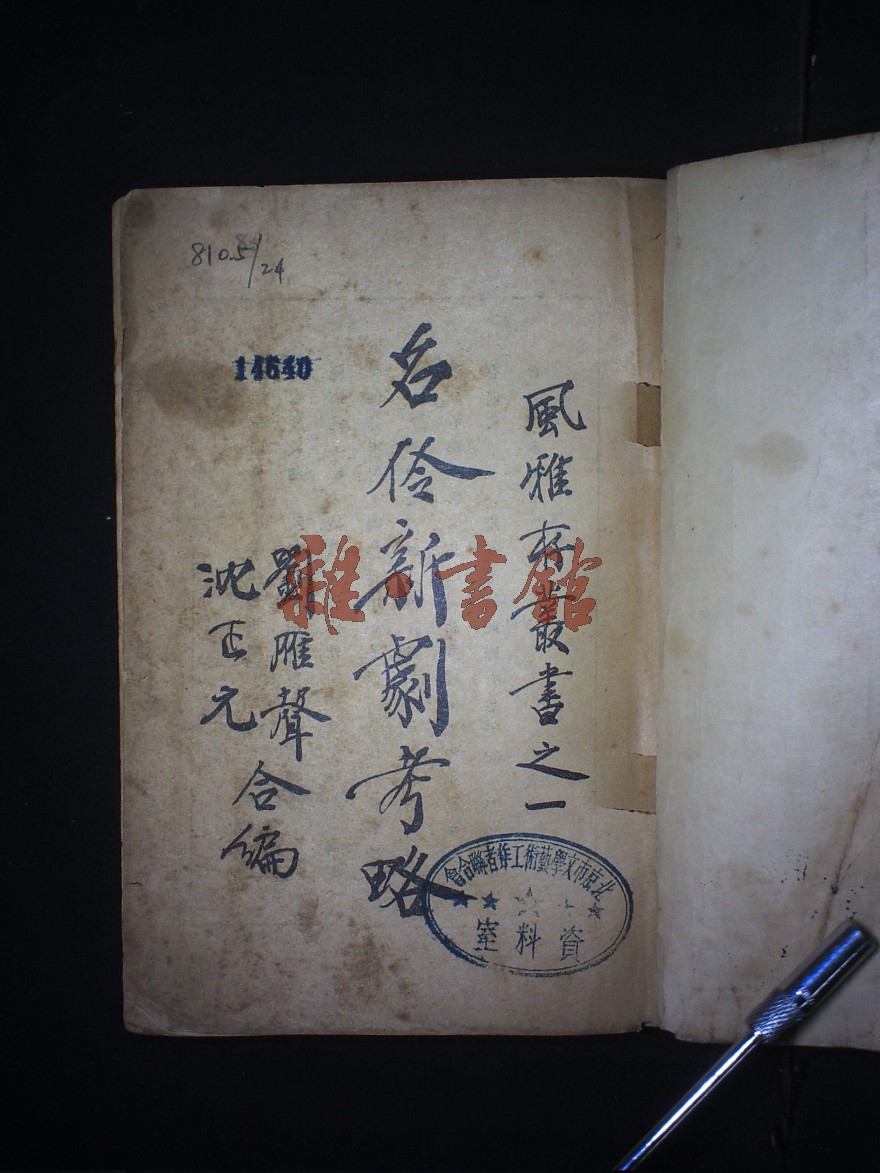 810.51/24
14640
風雅存叢書之一
名伶新劇考略
劉雁聲
沈正元
合編
北京市文學藝術工作者聯合會
資料室
雅·書館